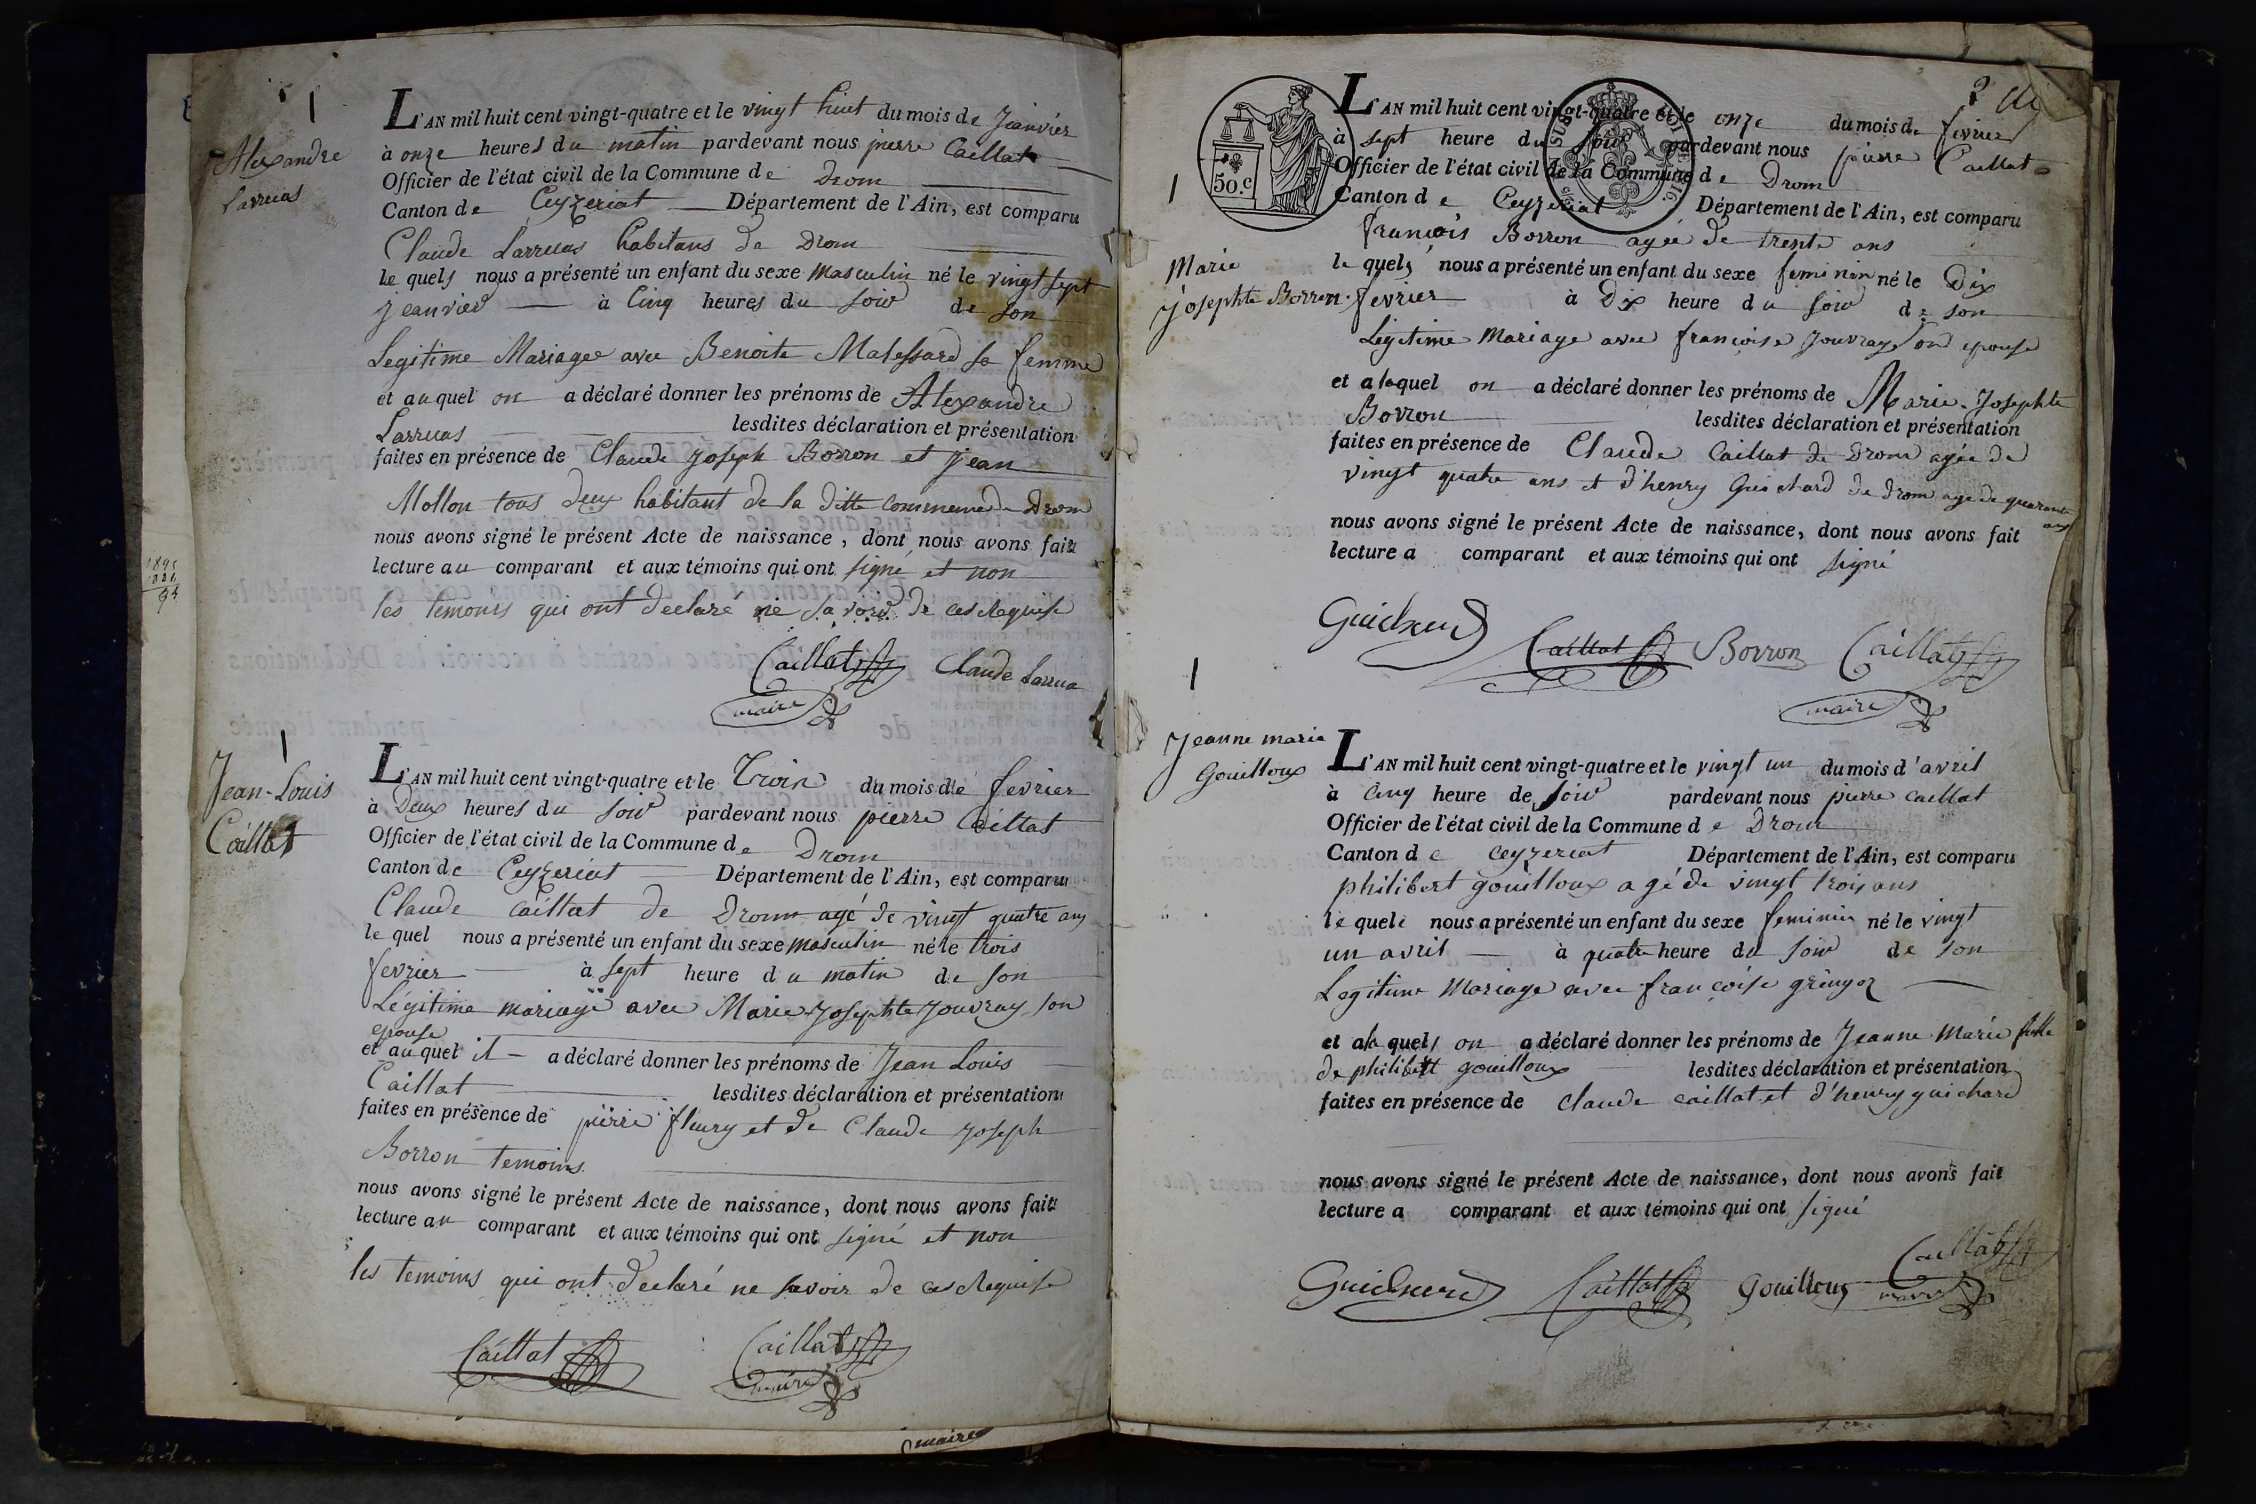 Alexandre
Larruas
L'AN mil huit cent vingt-quatre et le vingt huit du mois de Jeanvier
à onze heures du matin pardevant nous pierre Caillat
Officier de l'état civil de la Commune de Drom
Canton de Ceyzeriat Département de l'Ain, est comparu
Claude Larruas habitans de Drom
le quels nous a présenté un enfant du sexe masculin né le vingt sept
jeanvier à Cinq heures du soir de son
Legitime Mariagee avec Benoite Malessard sa femme
et au quel on a déclaré donner les prénoms de Alexandre
Larruas lesdites déclaration et présentation
faites en présence de Claude Joseph Borron et jean
Mollon tous deux habitant de la ditte commune de Drom
nous avons signé le présent Acte de naissance, dont nous avons fait
lecture au comparant et aux témoins qui ont signé et non
les temoins qui ont declaré ne savoir de ces Requise
Caillat Claude Larrua
maire
Jean-Louis
Caillat
L'AN mil huit cent vingt-quatre et le Trois du mois de fevrier
à Deux heures du soir pardevant nous pierre Caillat
Officier de l'état civil de la Commune de Drom
Canton de Ceyzeriat Département de l'Ain, est comparu
Claude Caillat de Drom agé de vingt quatre ans
le quel nous a présenté un enfant du sexe masculin né le trois
fevrier à sept heure du matin de son
Légitime mariage avec Marie Josephte Jouvray son
epouse
et au quel il a déclaré donner les prénoms de Jean Louis
Caillat lesdites déclaration et présentation
faites en présence de pierre fleury et de Claude Joseph
Borron temoins
nous avons signé le présent Acte de naissance, dont nous avons fait
lecture au comparant et aux témoins qui ont signé et non
les temoins qui ont declaré ne savoir de ces Requise
Caillat Caillat
maire
maire
2
50.c
L'AN mil huit cent vingt-quatre et le onze du mois de fevrier
à sept heure du soir pardevant nous pierre Caillat
Officier de l'état civil de la Commune de Drom
Canton de Ceyzeriat Département de l'Ain, est comparu
françois Borron agée de trente ans
Marie
Josephte Borron
le quels nous a présenté un enfant du sexe feminin né le Dix
fevrier à Dix heure du soir de son
Légitime Mariage avec françoise Jouvray son epouse
et a laquel on a déclaré donner les prénoms de Marie-Josephte
Borron lesdites déclaration et présentation
faites en présence de Claude Caillat de Drom agée de
vingt quatre ans et d'henry Guichard de Drom age de quarante
ans
nous avons signé le présent Acte de naissance, dont nous avons fait
lecture a comparant et aux témoins qui ont signé
Guichard Caillat Borron Caillat
maire
Jeanne marie
Gouilloux
L'AN mil huit cent vingt-quatre et le vingt un du mois d'avril
à Cinq heure de soir pardevant nous pierre Caillat
Officier de l'état civil de la Commune de Drom
Canton de Ceyzeriat Département de l'Ain, est comparu
philibert gouilloux agé de vingt trois ans
le quele nous a présenté un enfant du sexe feminin né le vingt
un avril à quatre heure du soir de son
Legitime Mariage avec françoise
et a la quel on a déclaré donner les prénoms de Jeanne Marie fille
de philibert gouilloux lesdites déclaration et présentation
faites en présence de Claude Caillat et d'henry guichard
nous avons signé le présent Acte de naissance, dont nous avons fait
lecture a comparant et aux témoins qui ont signé
Guichard Caillat Gouilloux Caillat
maire